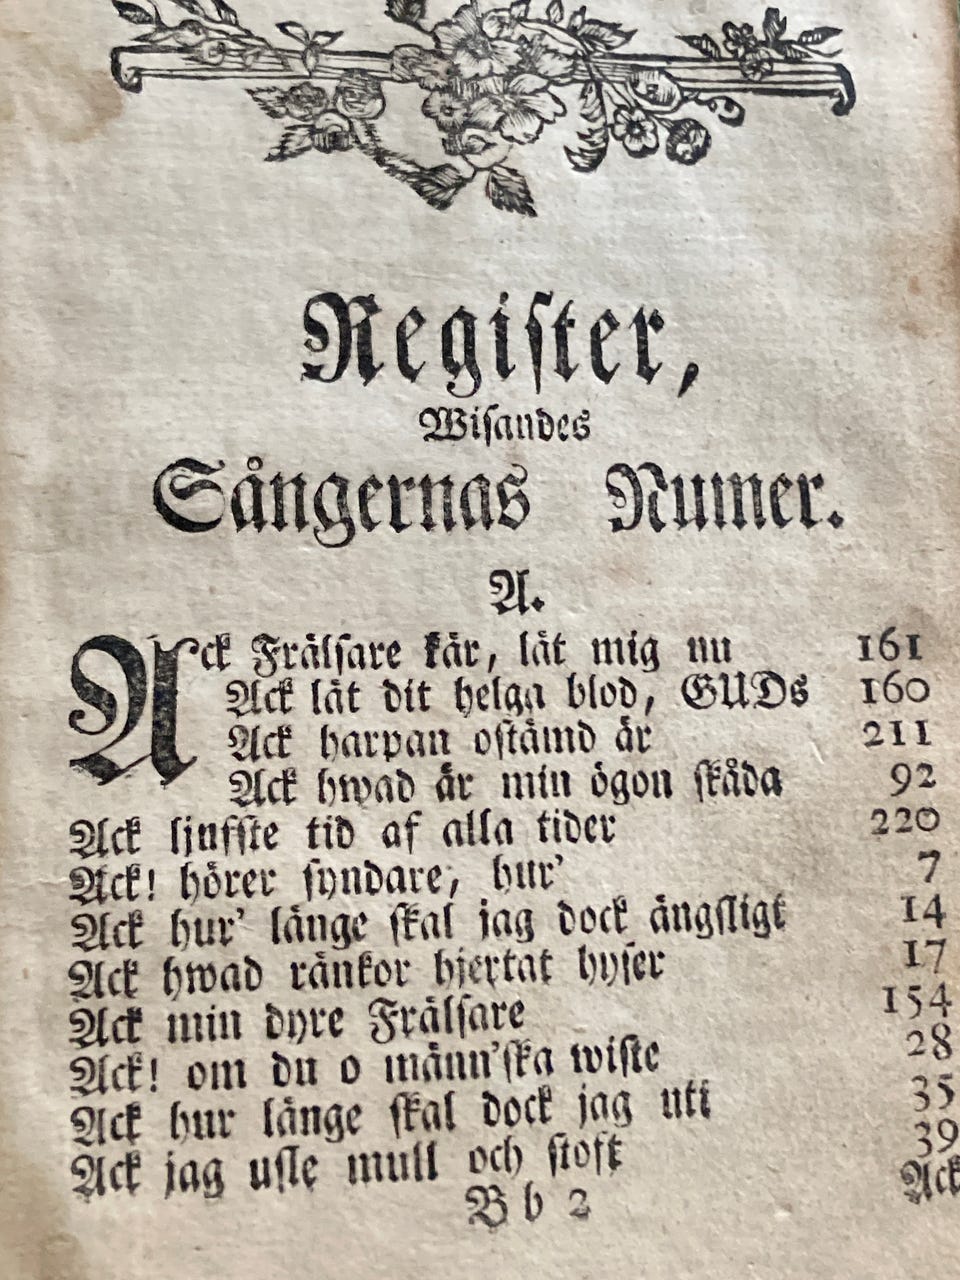 Regiſter,
Wiſandes
Sångernas Numer.
A.
Ack Frälſare kär, lät mig nu 161
Ack lät dit helga blod, GUDs 160
Ack harpan oſtämd är 211
Ack hwad är min ögon ſkåda 92
Ack ljufſte tid af alla tider 220
Ack! hörer ſyndare, hur' 7
Ack hur' länge ſkal jag dock ängſligt 14
Ack hwad ränkor hjertat hyſer 17
Ack min dyre Frälſare 154
Ack! om du o männ'ſka wiſte 28
Ack hur länge ſkal dock jag uti 35
Ack jag uſle mull och ſtoft 39
B b 2 Ack